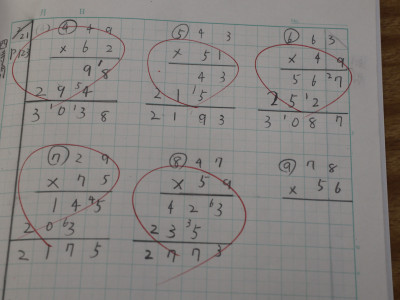 ④ 4 9
x 6 2
9 8
2 9 4
3 0 3 8
⑤ 4 3
x 5 1
4 3
2 1 5
2 1 9 3
⑥ 6 3
x 4 9
5 6 7
2 5 2
3 0 8 7
⑦ 2 9
x 7 5
1 4 5
2 0 3
2 1 7 5
⑧ 4 7
x 5 9
4 2 3
2 3 5
2 7 7 3
⑨ 7 8
x 5 6